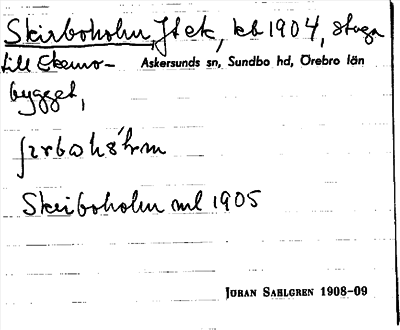 Skirboholm, Jt ek, kb 1904, stuga
till Ekemo-
Askersunds sn, Sundbo hd, Örebro län
bygget,
Skirboholm ml 1905
JÖRAN SAHLGREN 1908-09